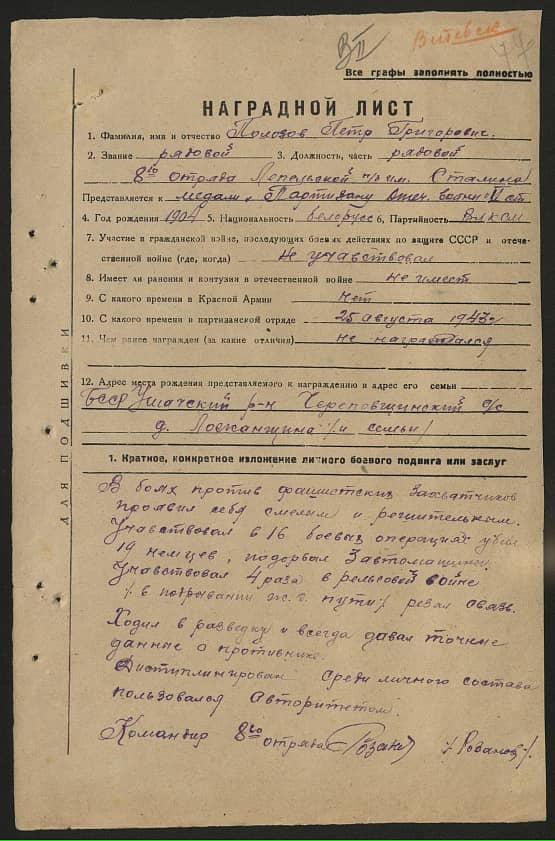 В II Витебск
77
Все графы заполнять полностью
НАГРАДНОЙ ЛИСТ
1. Фамилия, имя и отчество Полозов Петр Григоревич.
2. Звание рядовой 3. Должность, часть рядовой
8го отряда Лепельской п/б им. Сталина
Представляется к медали „Партизану Отеч. войны" II ст
4. Год рождения 1904 5. Национальность белорусс 6. Партийность ВЛКСМ
7. Участие в гражданской войне, последующих боевых действиях по защите СССР и отече-
ственной войне (где, когда) не учавствовал
8. Имеет ли ранения и контузии в отечественной войне не имеет
9. С какого времени в Красной Армии нет
10. С какого времени в партизанской отряде 25 августа 1943г
11. Чем ранее награжден (за какие отличия) не награждался
12. Адрес места рождения представляемого к награждению и адрес его семьи
БССР Ушачский р-н Череповщинский с/с
д. /и семьи/
ДЛЯ ПОДШИВКИ
1. Краткое, конкретное изложение личного боевого подвига или заслуг
В боях против фашистских захватчиков
проявил себя смелым и решительным.
Учавствовал в 16 боевых операциях убил
19 немцев, подорвал 3 автомашины.
Учавствовал 4 раза в рельсовой войне
/в подрывании ж.д. пути/ резал связь.
Ходил в разведку и всегда давал точные
данные о противнике.
Дистиплинирован среди личного состава
пользовался авторитетом.
Командир 8го отряда /Розанов/.